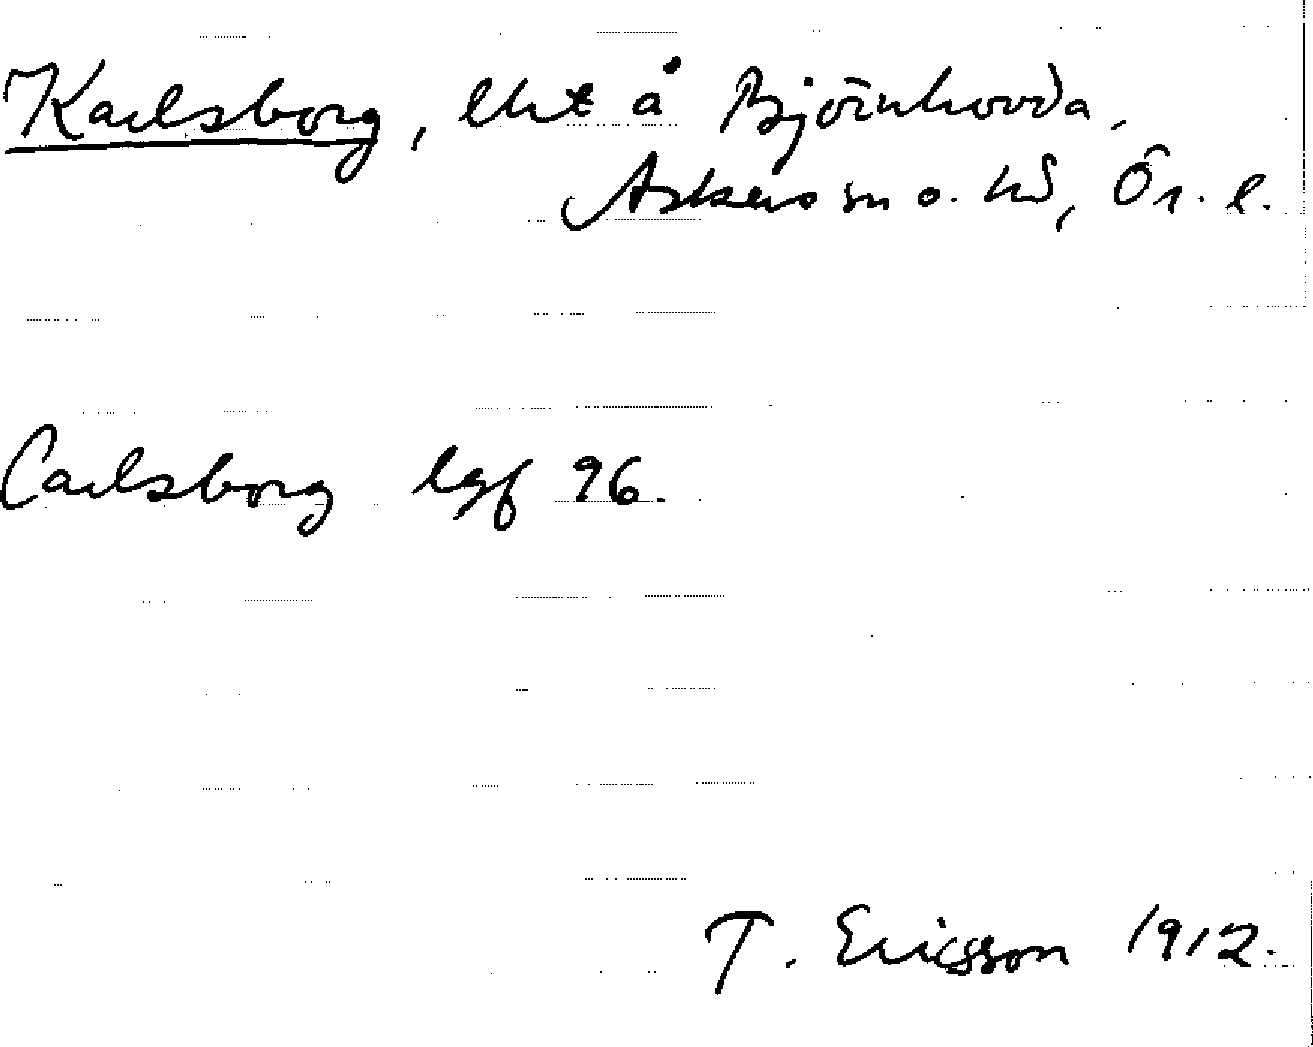 Karlsborg, lht å Björnhovda,
Askers sn o. hd, Ör. l.
Carlsborg lgf 96.
T. Ericsson 1912.